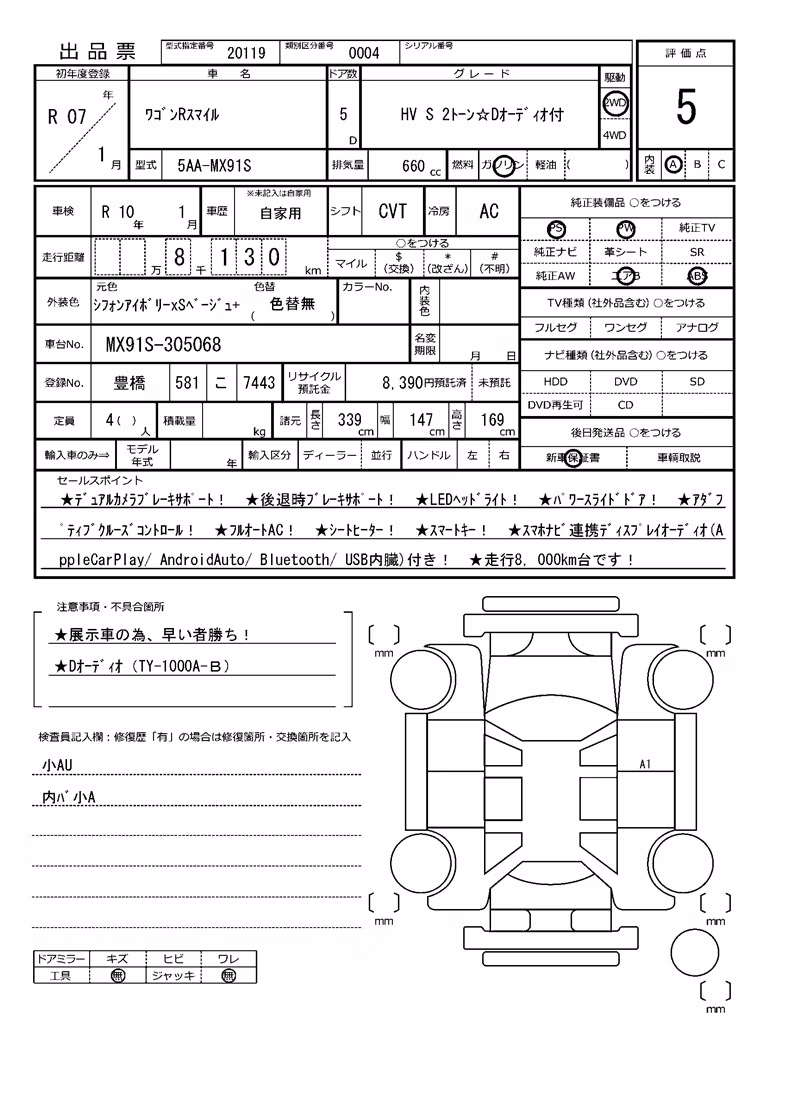 出品票 型式指定番号 20119 類別区分番号 0004 シリアル番号
評価点
5
初年度登録 車名 ドア数 グレード 駆動
R 07 年 1 月
ワゴンRスマイル 5 D HV S 2トーン☆Dオーディオ付 2WD
4WD
型式 5AA-MX91S 排気量 660 cc 燃料 ガソリン 軽油 ( )
内装 A B C
車検 R 10 年 1 月 車歴 ※未記入は自家用 自家用 シフト CVT 冷房 AC
純正装備品 ○をつける
PS PW 純正TV
純正ナビ 革シート SR
純正AW エアB ABS
走行距離 万 8 千 1 3 0 km
○をつける
マイル $(交換) *(改ざん) #(不明)
外装色 元色 シフォンアイボリーxSベージュ+ 色替 ( 色替無 ) カラーNo. 内装色
TV種類(社外品含む)○をつける
フルセグ ワンセグ アナログ
車台No. MX91S-305068 名変期限 月 日
ナビ種類(社外品含む)○をつける
HDD DVD SD
DVD再生可 CD
登録No. 豊橋 581 こ 7443 リサイクル預託金 8,390円預託済 未預託
定員 4( ) 人 積載量 kg 諸元 長さ 339 cm 幅 147 cm 高さ 169 cm
後日発送品 ○をつける
新車保証書 車輌取説
輸入車のみ⇒ モデル年式 年 輸入区分 ディーラー 並行 ハンドル 左 右
セールスポイント
★デュアルカメラブレーキサポート! ★後退時ブレーキサポート! ★LEDヘッドライト! ★パワースライドドア! ★アダプ
ティブクルーズコントロール! ★フルオートAC! ★シートヒーター! ★スマートキー! ★スマホナビ連携ディスプレイオーディオ(A
ppleCarPlay/ AndroidAuto/ Bluetooth/ USB内臓)付き! ★走行8,000km台です!
注意事項・不具合箇所
★展示車の為、早い者勝ち!
★Dオーディオ(TY-1000A-B)
検査員記入欄:修復歴「有」の場合は修復箇所・交換箇所を記入
小AU
内バ小A
mm
mm
A1
mm
mm
mm
ドアミラー キズ ヒビ ワレ
工具 無 ジャッキ 無